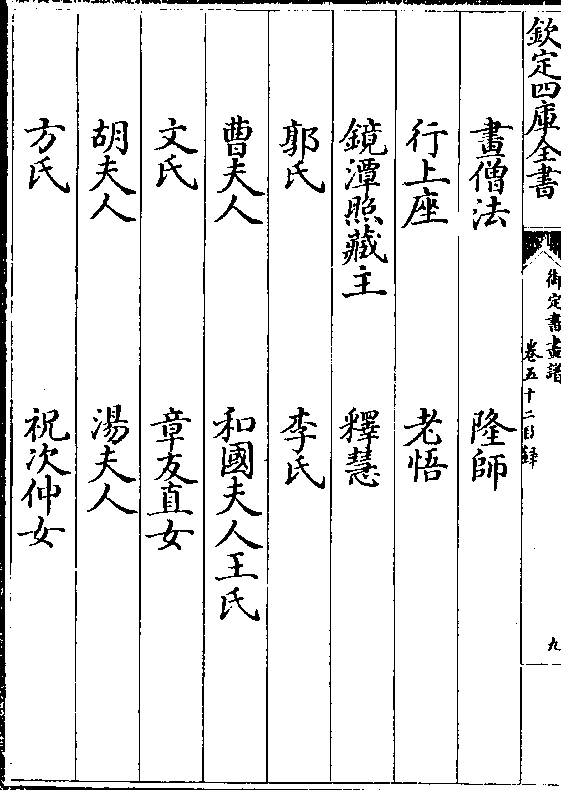 欽定四庫全書
御定書畫譜
卷五十二目錄
九
畫僧法 隆師
行上座 老悟
鏡潭照藏主 釋慧
郭氏 李氏
曹夫人 和國夫人王氏
文氏 章友直女
胡夫人 湯夫人
方氏 祝次仲女